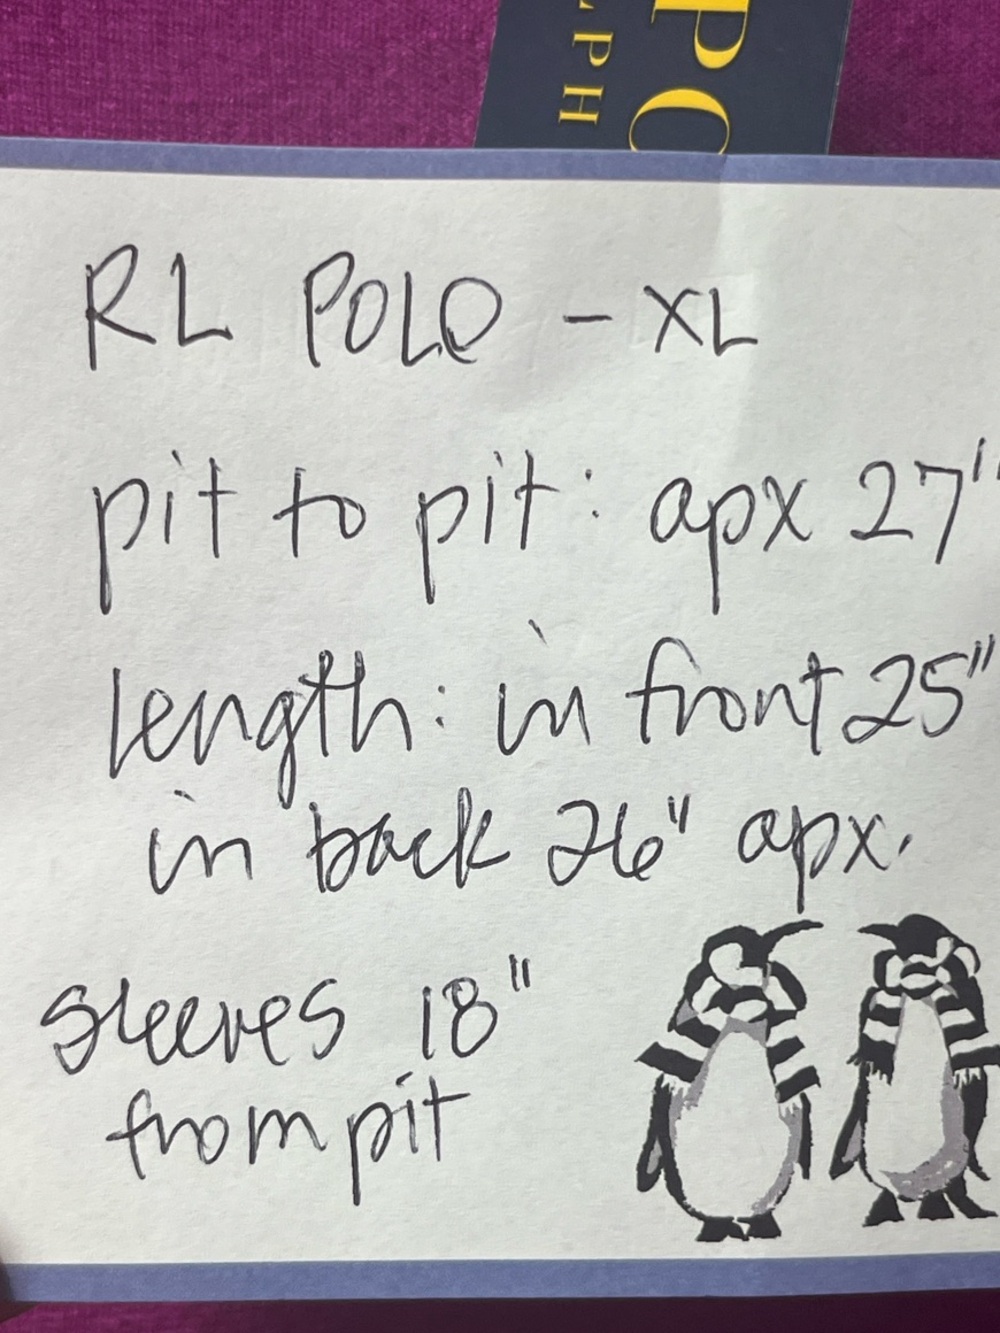 PO
LPH
RL POLO - XL
pit to pit: apx 27"
length: in front 25"
in back 26" apx.
sleeves 18"
from pit